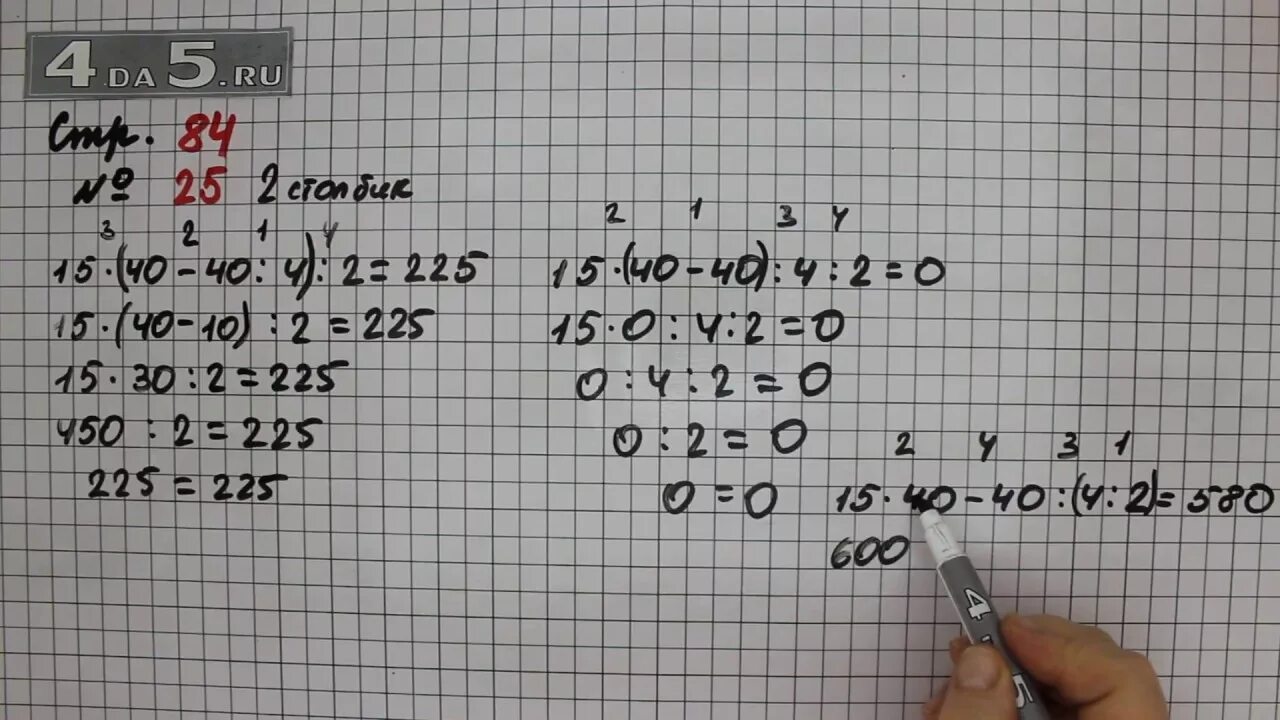 4.DA 5.RU
Стр. 84
№ 25 2 столбик
3 2 1 4
15·(40-40:4):2=225
15·(40-10):2=225
15·30:2=225
450:2=225
225=225
2 1 3 4
15·(40-40):4:2=0
15·0:4:2=0
0:4:2=0
0:2=0
0=0
2 4 3 1
15·40-40:(4:2)=580
600
4
5